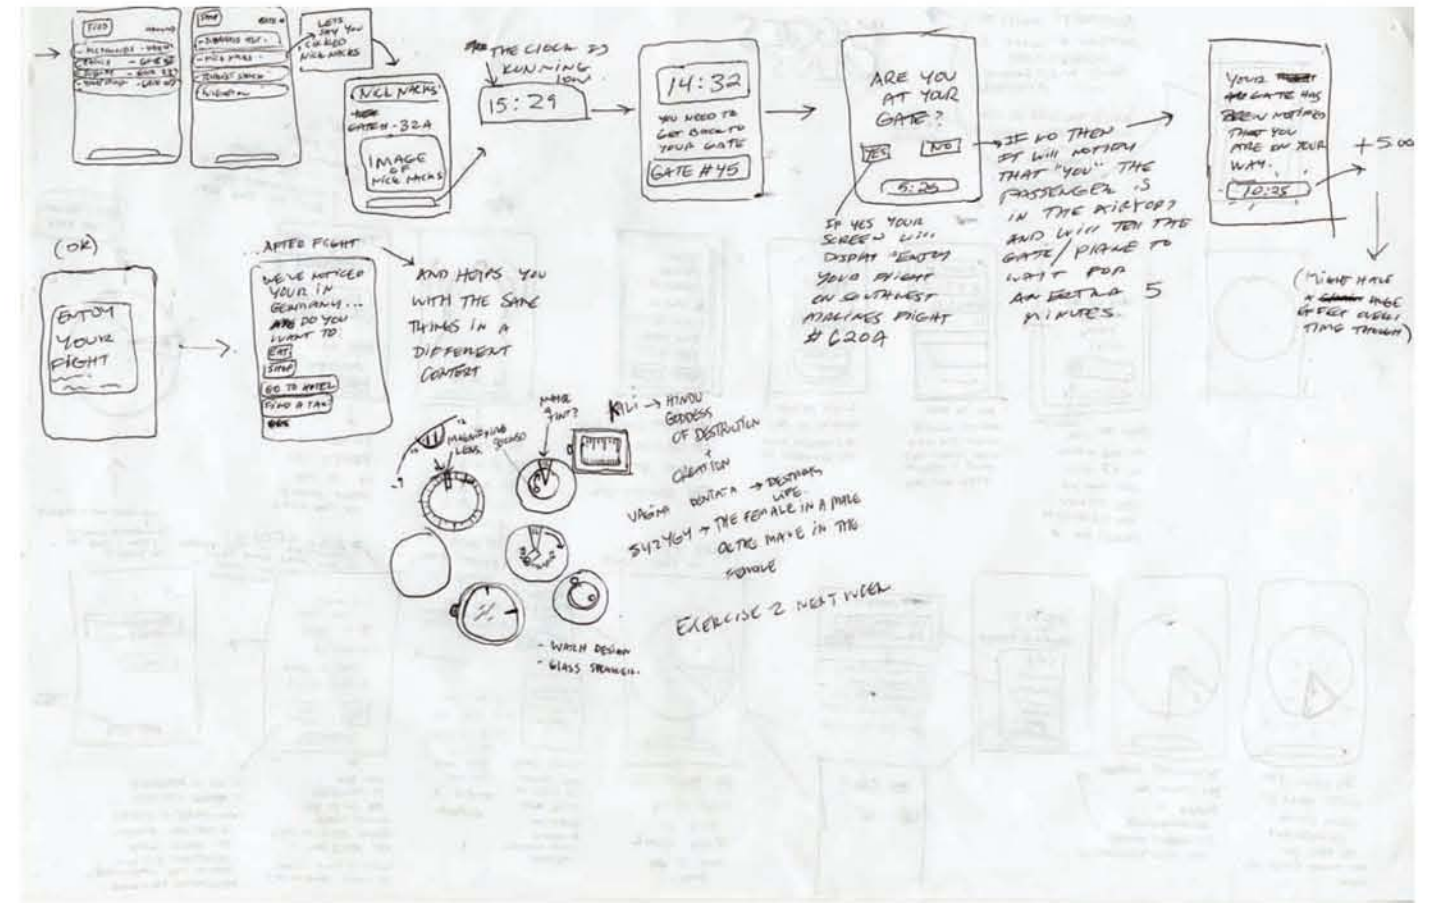 FOOD
SHOP
LETS
SAY YOU
CLICKED
NICK NACKS
NICK NACKS
GATE # - 32A
IMAGE
OF
NICK NACKS
THE CLOCK IS
RUNNING
LOW
15:29
14:32
YOU NEED TO
GET BACK TO
YOUR GATE
GATE #45
ARE YOU
AT YOUR
GATE?
YES NO
5:25
IF YES YOUR
SCREEN WILL
DISPLAY "ENJOY
YOUR FLIGHT
ON SOUTHWEST
AIRLINES FLIGHT
# 620A
IF NO THEN
IT WILL NOTIFY
THAT "YOU" THE
PASSENGER IS
IN THE AIRPORT
AND WILL TELL THE
GATE/PLANE TO
WAIT FOR
AN EXTRA 5
MINUTES.
YOUR
GATE HAS
BEEN NOTIFIED
THAT YOU
ARE ON YOUR
WAY.
10:25
+5:00
(MIGHT HAVE
A HUGE
EFFECT EVERY
TIME THOUGH)
(OR)
ENJOY
YOUR
FIGHT
AFTER FIGHT
WE'VE NOTICED
YOUR IN
GERMANY...
DO YOU
WANT TO:
EAT
SHOP
GO TO HOTEL
FIND A TAXI
AND HELPS YOU
WITH THE SAME
THINGS IN A
DIFFERENT
CONTEXT
MAGNIFYING
LENS.
KALI → HINDU
GODDESS
OF DESTRUCTION
+
CREATION
VAGINA DENTATA → DESTROYS
LIFE.
SYZYGY → THE FEMALE IN A MALE
MALE IN THE
FEMALE
EXERCISE 2 NEXT WEEK
- WATCH DESIGN
- GLASS